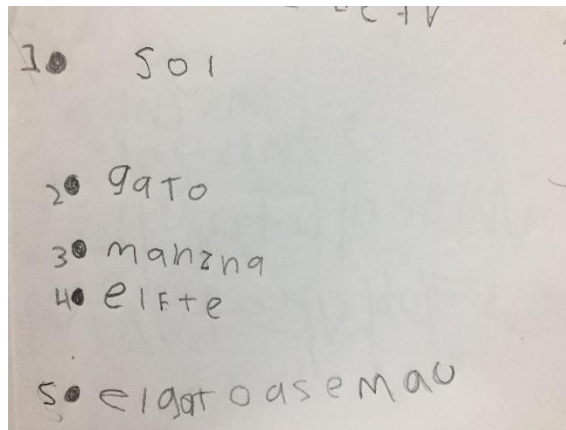 1. sol
2. gato
3. manzna
4. elFte
5. elgatoasemau